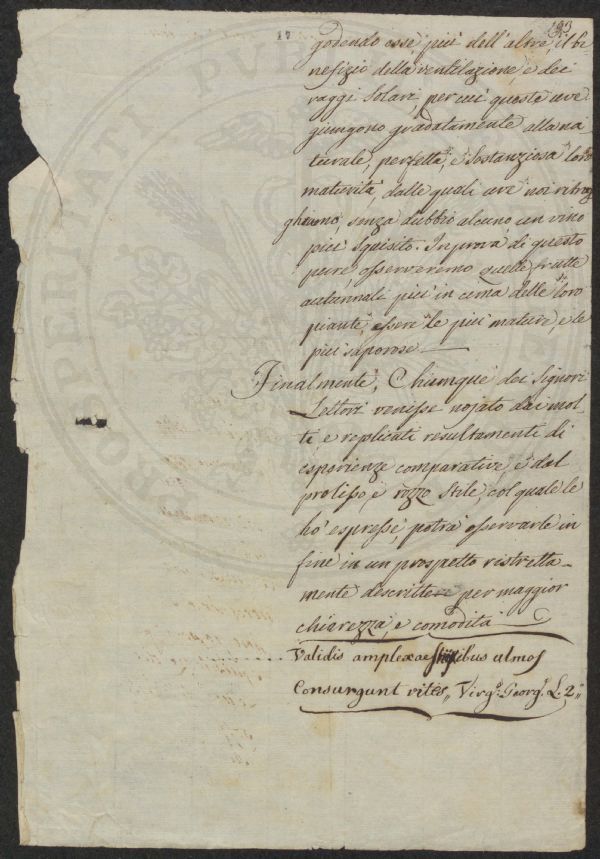 17
193
godendo esse più dell'altre, il be
nefizio della ventilazione e dei
raggi Solari, per cui queste uve
giungono gradatamente alla na
turale, perfetta, e Sostanziosa loro
maturità, dalle quali uve noi ritrag
ghiamo, senza dubbio alcuno un vino
più squisito. In prova di questo
pure, osserveremo quelle frutte
autunnali più in cima delle loro
piante, essere le più mature, e le
più saporose —
Finalmente, Chiunque dei Signori
Lettori venisse nojato dai mol
ti e replicati resultamenti di
esperienze comparative, e dal
prolisso, e rozzo Stile, col quale le
ho espresse, potrà osservarle in
fine in un prospetto ristretta-
mente descritte per maggior
chiarezza, e comodità
Validis amplexae stirpibus ulmos
Consurgunt vites „ Virg: Georg: L. 2„
PROSPERITATI PVB